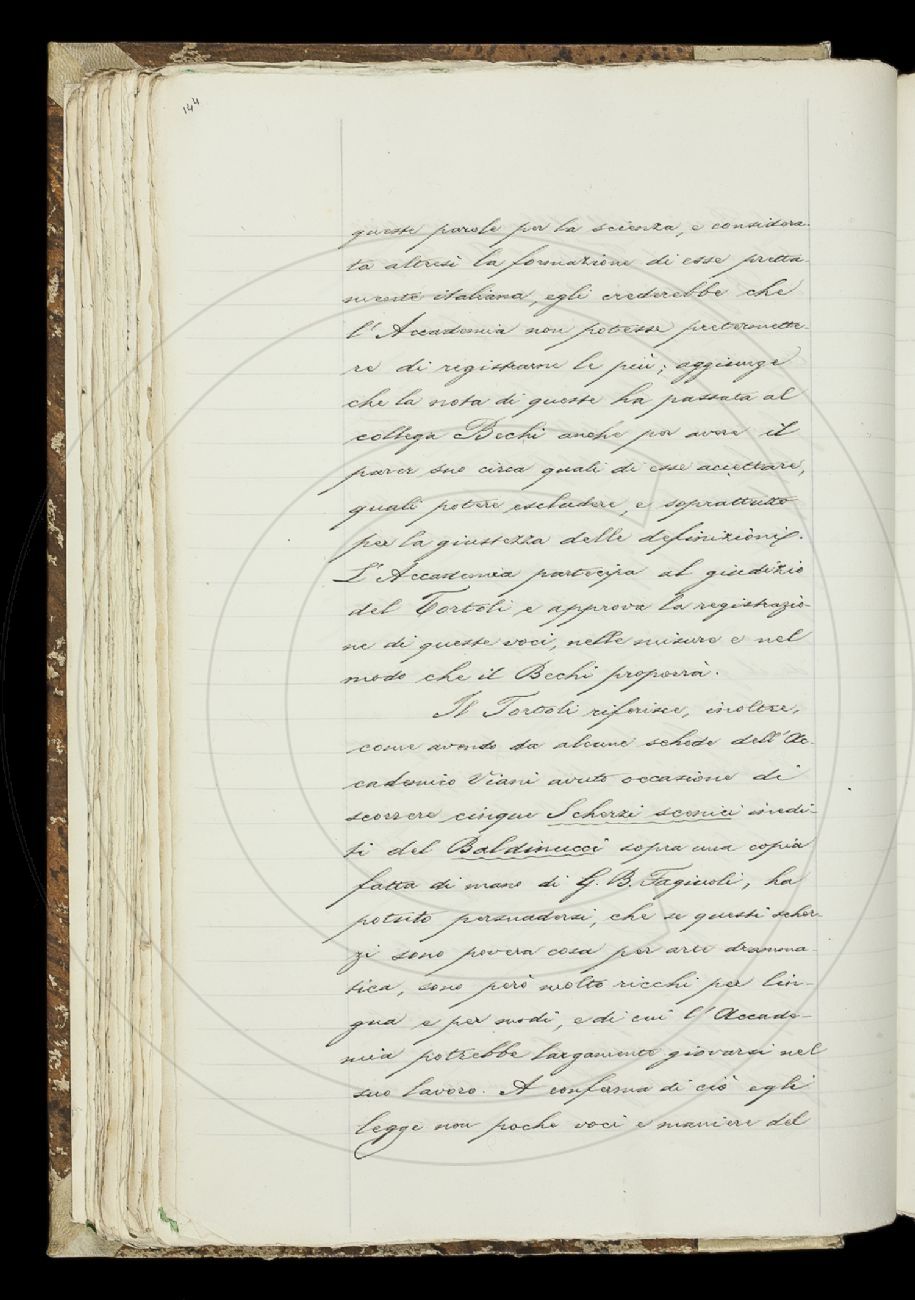 144
queste parole per la scienza, e considera-
ta altresì la formazione di esse pretta-
mente italiana, egli crederebbe che
l'Accademia non potesse pretermette-
re di registrarne le più; aggiunge
che la nota di queste ha passata al
collega Bechi anche per avere il
parer suo circa quali di esse accettare,
quali potere escludere, e soprattutto
per la giustezza delle definizioni.
L'Accademia partecipa al giudizio
del Tortoli e approva la registrazio-
ne di queste voci, nelle misure e nel
modo che il Bechi proporrà.
Il Tortoli riferisce, inoltre,
come avendo da alcune schede dell'Ac-
cademico Viani avuto occasione di
scorrere cinque Scherzi scenici inedi-
ti del Baldinucci sopra una copia
fatta di mano di G. B. Fagiuoli, ha
potuto persuadersi, che se questi scher-
zi sono povera cosa per arte dramma-
tica, sono però molto ricchi per lin-
gua e per modi, e di cui l'Accade-
mia potrebbe largamente giovarsi nel
suo lavoro. A conferma di ciò egli
legge non poche voci e maniere del